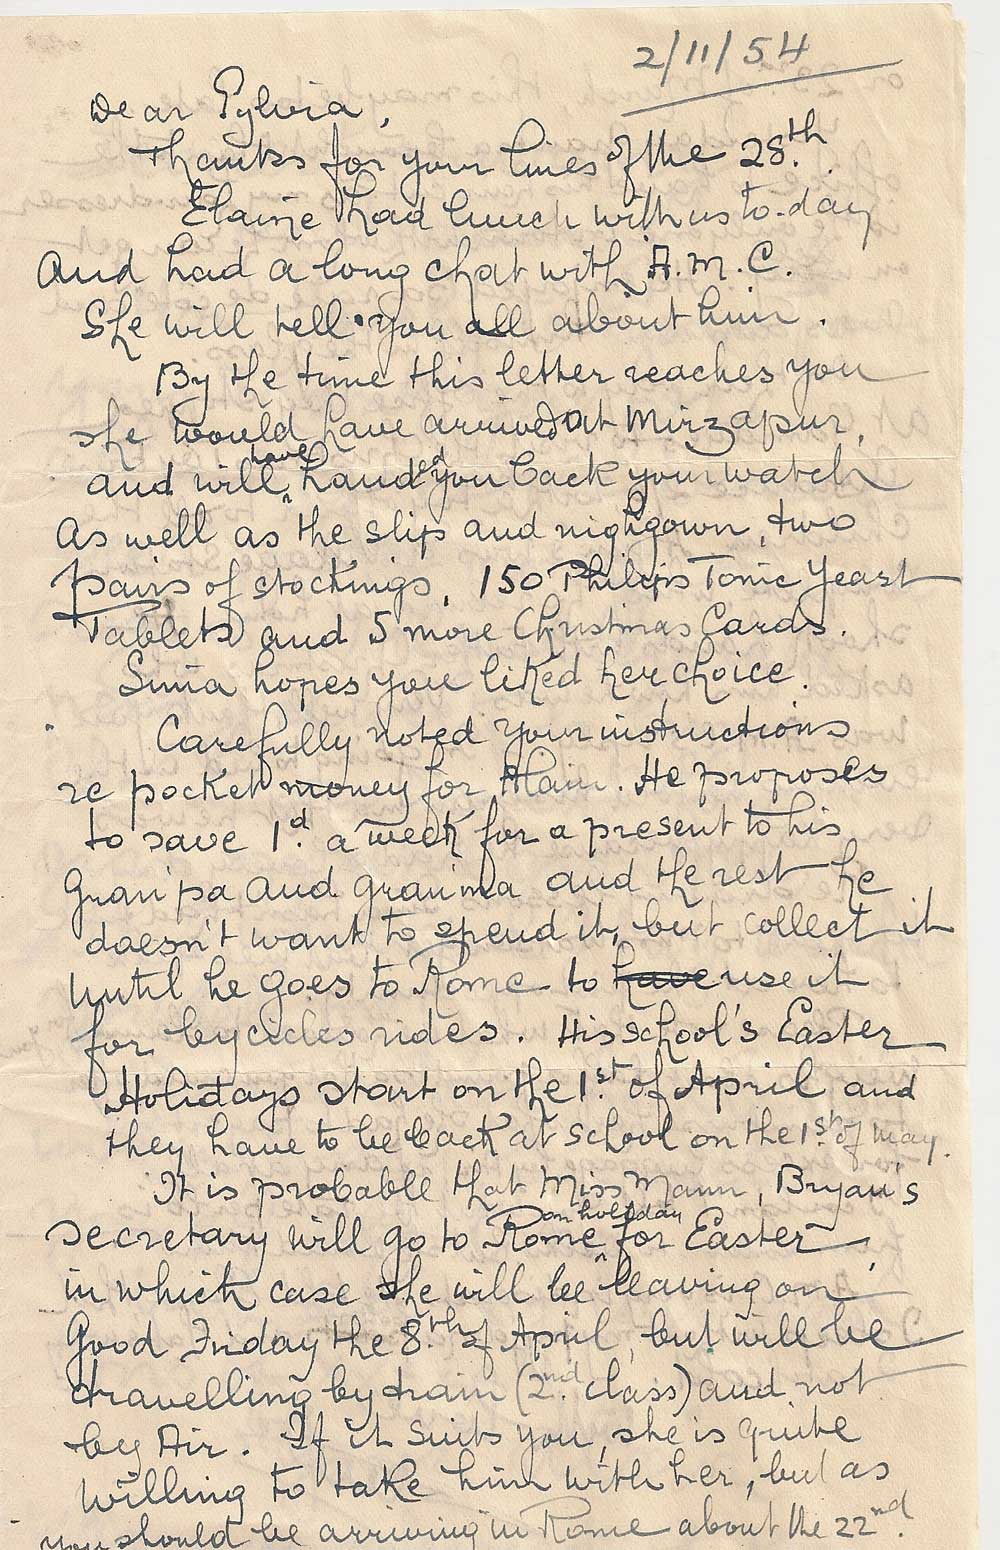 2/11/54
Dear Sylvia,
Thanks for your lines of the 28.th
Elaine had lunch with us to-day
And had a long chat with A.M.C.
She will tell you all about him.
By the time this letter reaches you
she would have arrived at Mirzapur,
and will have handed you back your watch
As well as the slip and nighgown, two
pairs of stockings, 150 Philips Tonic Yeast
Tablets and 5 more Christmas Cards.
hopes you liked her choice.
Carefully noted your instructions
re pocket money for Alain. He proposes
to save 1.d a week for a present to his
Gran'pa and Gran'ma and the rest he
doesn't want to spend it, but collect it
until he goes to Rome to have use it
for bycicles rides. His school's Easter
Holidays start on the 1.st of April and
they have to be back at school on the 1.st of May.
It is probable that Miss Mann, Bryan's
secretary will go to Rome on holiday for Easter,
in which case she will be leaving on
Good Friday the 8.th of April, but will be
travelling by train (2.nd class) and not
by Air. If it suits you, she is quite
willing to take him with her, but as
you should be arriving in Rome about the 22.nd